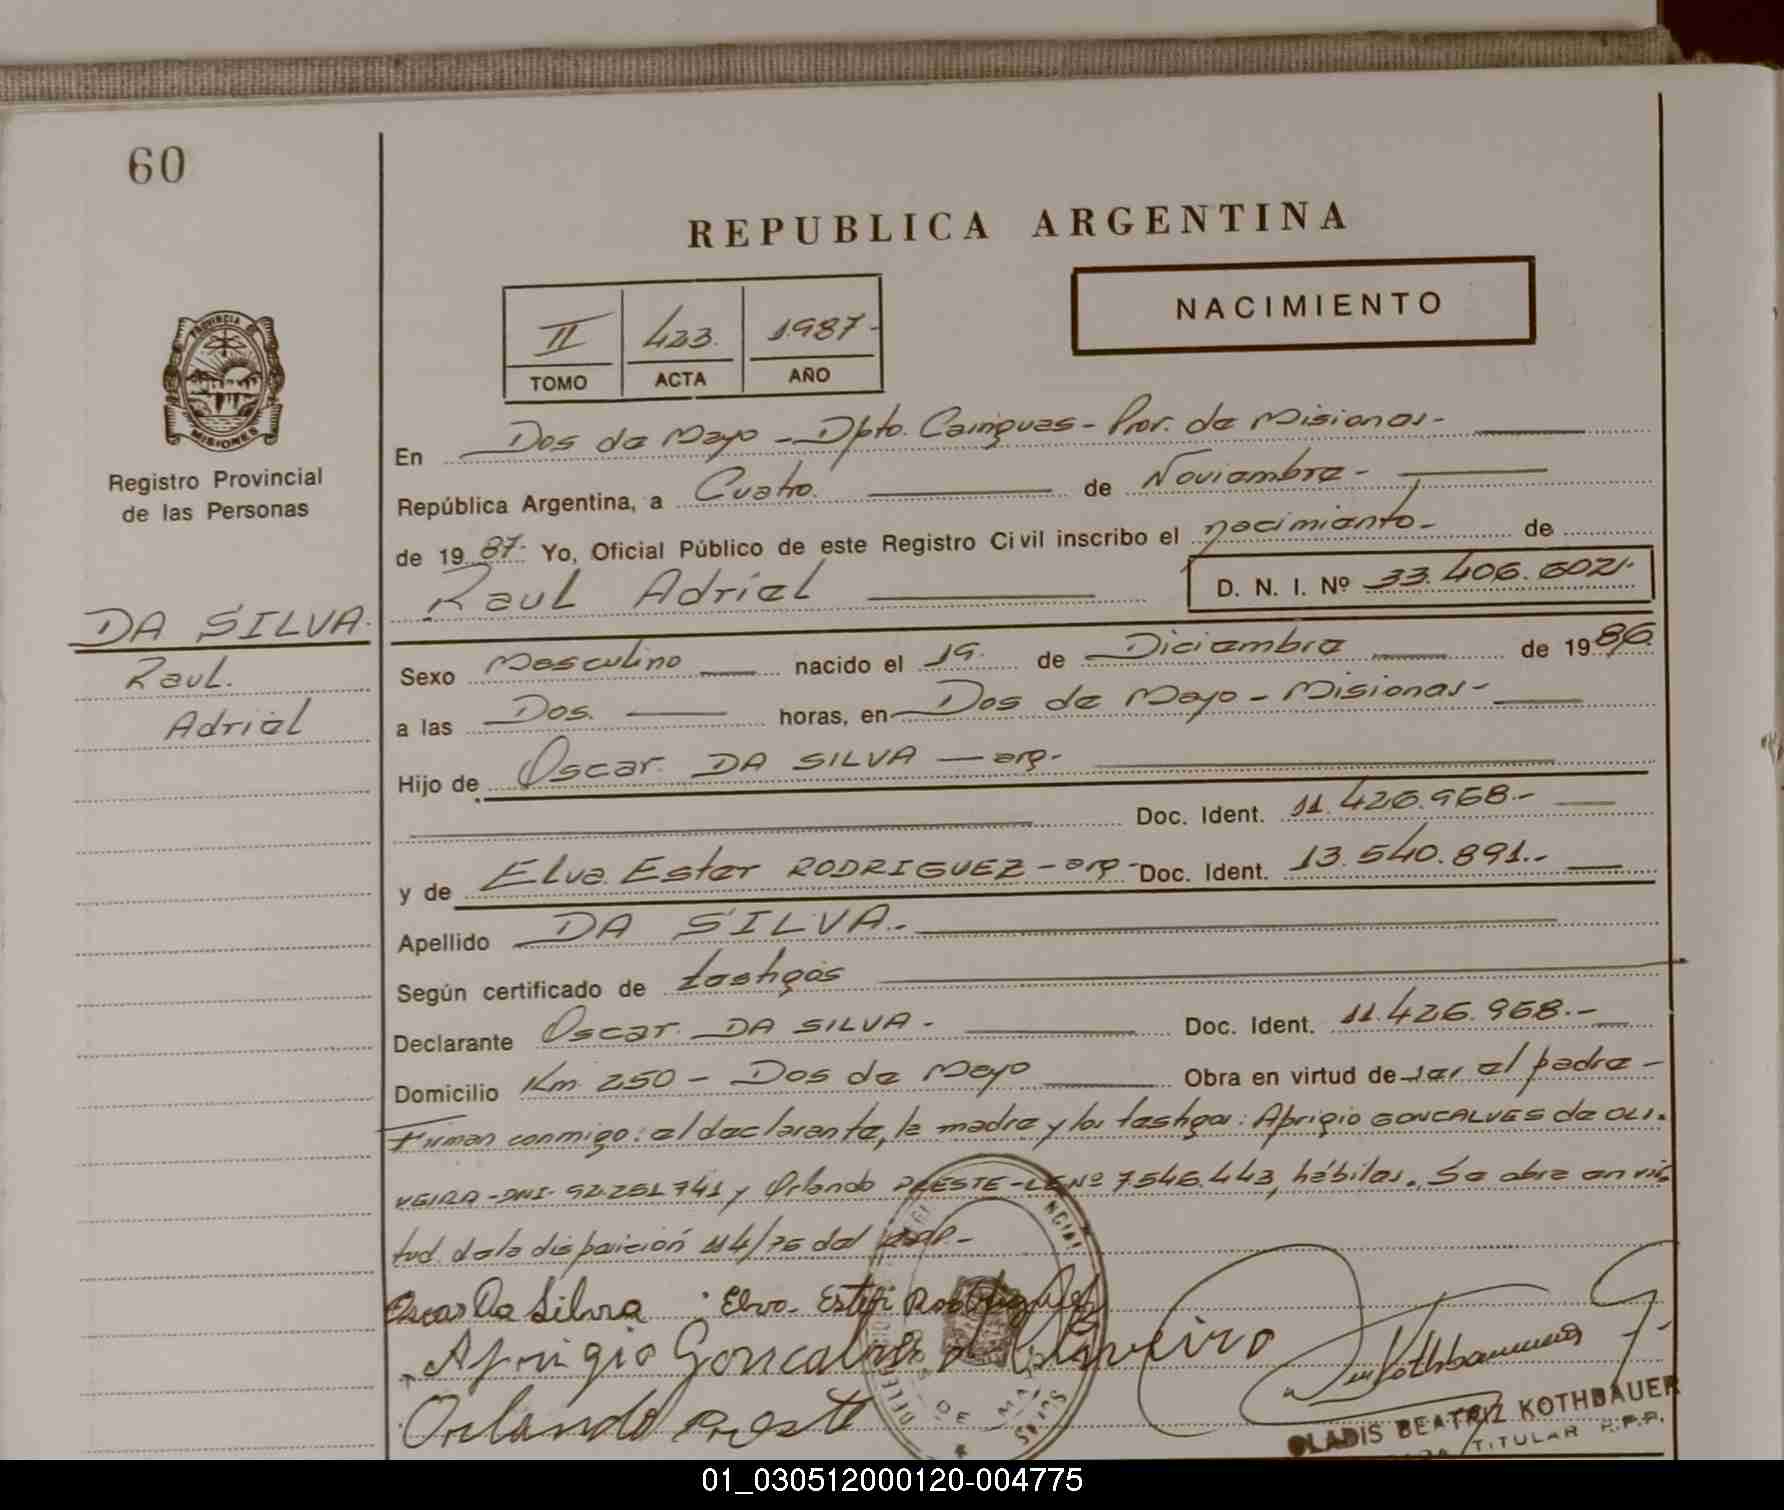 60
REPUBLICA ARGENTINA
NACIMIENTO
II 423. 1987-
TOMO ACTA AÑO
PROVINCIA DE
MISIONES
Registro Provincial
de las Personas
DA SILVA.
Raul.
Adriel
En Dos de Mayo - Dpto. Cainguas - Prov. de Misiones-
República Argentina, a Cuatro. de Noviembre-
de 19 87- Yo, Oficial Público de este Registro Civil inscribo el nacimiento- de
Raul Adriel D. N. I. Nº 33.406.602/.
Sexo Masculino nacido el 19. de Diciembre de 19 86.
a las Dos. horas, en Dos de Mayo - Misiones-
Hijo de Oscar DA SILVA — arg-
Doc. Ident. 11.426.968.-
y de Elva Ester RODRIGUEZ - arg- Doc. Ident. 13.540.891.-
Apellido DA SILVA.-
Según certificado de testigos
Declarante Oscar DA SILVA- Doc. Ident. 11.426.968.-
Domicilio Km 250 - Dos de Mayo Obra en virtud de ser el padre -
Firman conmigo: el declarante, la madre y los testigos: Aprigio GONCALVES de OLI-
VEIRA-DNI- 92.251.741 y Orlando PRESTE-LE Nº 7.546.443, hábiles. Se obra en vir-
tud de la disposición 114/75 del
Oscar Da Silva Elva Ester Rodriguez
Aprigio Goncalves de Oliveira
Orlando Preste
GLADIS BEATRIZ KOTHBAUER
TITULAR R.P.P.
01_030512000120-004775